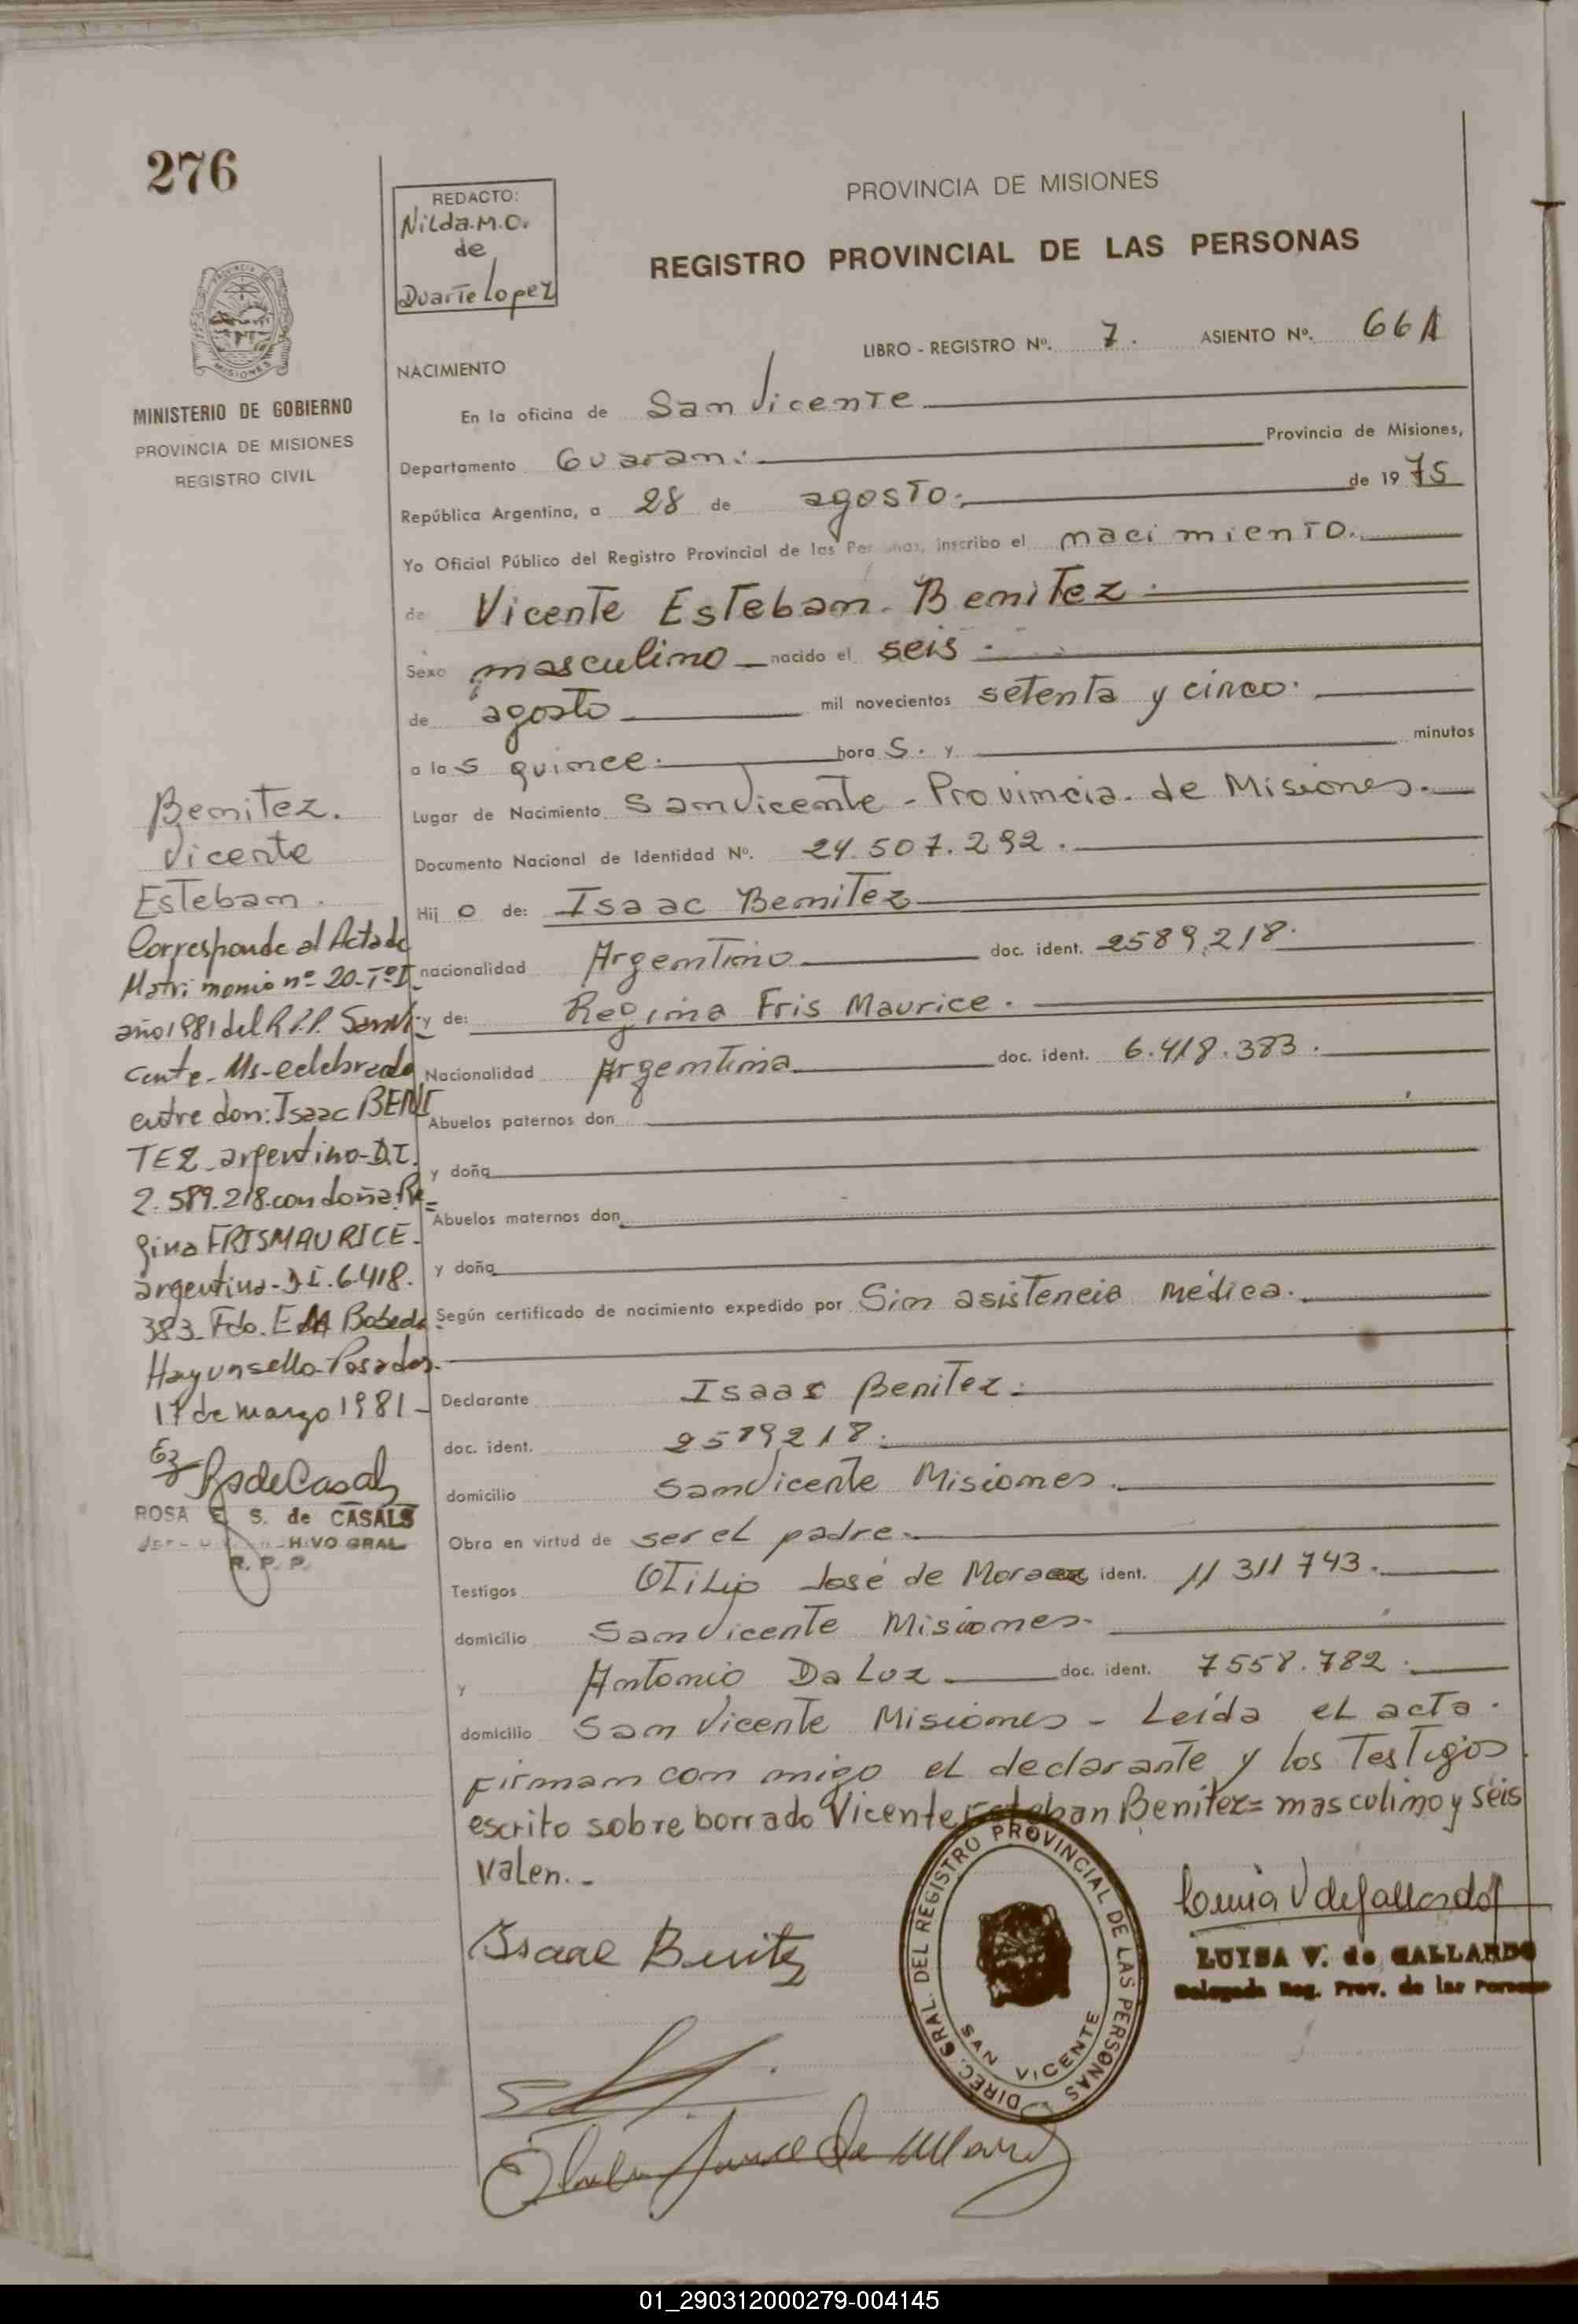 276
REDACTO:
Nilda.M.O.
de
Duarte Lopez
PROVINCIA DE MISIONES
REGISTRO PROVINCIAL DE LAS PERSONAS
LIBRO - REGISTRO Nº. 7. ASIENTO Nº. 661
MINISTERIO DE GOBIERNO
PROVINCIA DE MISIONES
REGISTRO CIVIL
NACIMIENTO
En la oficina de San Vicente
Departamento Guarani Provincia de Misiones,
República Argentina, a 28 de agosto. de 1975
Yo Oficial Público del Registro Provincial de las Personas, inscribo el nacimiento.
de Vicente Esteban Benitez.
Sexo masculino nacido el seis.
de agosto mil novecientos setenta y cinco.
a las quince. hora S. y minutos
Lugar de Nacimiento San Vicente - Provincia de Misiones.
Documento Nacional de Identidad Nº. 24.507.292.
Hijo de: Isaac Benitez
nacionalidad Argentino doc. ident. 2589.218.
y de: Regina Fris Maurice.
Nacionalidad Argentina doc. ident. 6.418.383.
Abuelos paternos don
y doña
Abuelos maternos don
y doña
Según certificado de nacimiento expedido por Sin asistencia médica.
Declarante Isaac Benitez.
doc. ident. 2589218.
domicilio San Vicente Misiones.
Obra en virtud de ser el padre.
Testigos Otilio José de Moraez ident. 11311743.
domicilio San Vicente Misiones.
y Antonio Da Luz doc. ident. 7558.782.
domicilio San Vicente Misiones - Leída el acta.
Firman con migo el declarante y los Testigos
escrito sobre borrado Vicente Esteban Benitez= masculino y seis
valen.-
Benitez.
Vicente
Esteban.
Corresponde al Acta de
Matrimonio nº 20-TºI
año 1981 del R.P.P. San Vi-
cente- Ms-celebrado
entre don: Isaac BENI
TEZ argentino-D.I.
2.589.218 con doña Re=
gina FRISMAURICE.
argentina-D.I. 6.418.
383 Fdo.
Hay un sello Posadas.
17 de marzo 1981-
RsdeCasals
ROSA E. S. de CASALS
HIVO GRAL
R. P. P.
Isaac Benitez
DIREC. GRAL. DEL REGISTRO PROVINCIAL DE LAS PERSONAS
SAN VICENTE
Luisa V de Gallardo
LUISA V. de GALLARDO
Delegada Reg. Prov. de las Personas
01_290312000279-004145